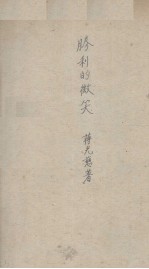 勝利的微笑
蔣光慈著